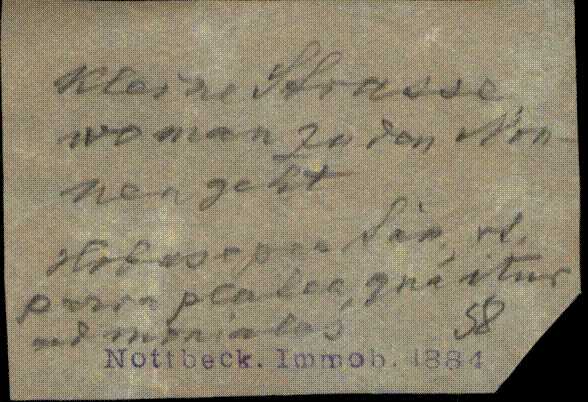 Kleine Strasse,
wo man zu den Non-
nen geht
parva platea, qua itur
ad moniales
58
Nottbeck. Immob. 1884